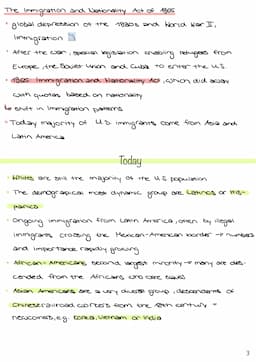 The Immigration and Nationality Act of 1965
• global depression of the 1930s and World War II,
immigration
• After the war, special legislation enabling refugees from
Europe, the Soviet Union and Cuba to enter the U.S.
• 1965 Immigration and Nationality Act, which did away
with quotas based on nationality
↳ shift in immigration patterns
• Today majority of U.S immigrants come from Asia and
Latin America
Today
• Whites are still the majority of the U.S population
• The demographical most dynamic group are Latinos or His-
panics
• Ongoing immigration from Latin America, often by illegal
immigrants crossing the Mexican-American border → numbers
and importance rapidly growing
• African-Americans, second largest minority → many are des-
cended from the Africans who were slaves
• Asian Americans are a very diverse group, descendants of
Chinese railroad workers from the 19th century -
newcomers, e.g. Korea, Vietnam or India
3